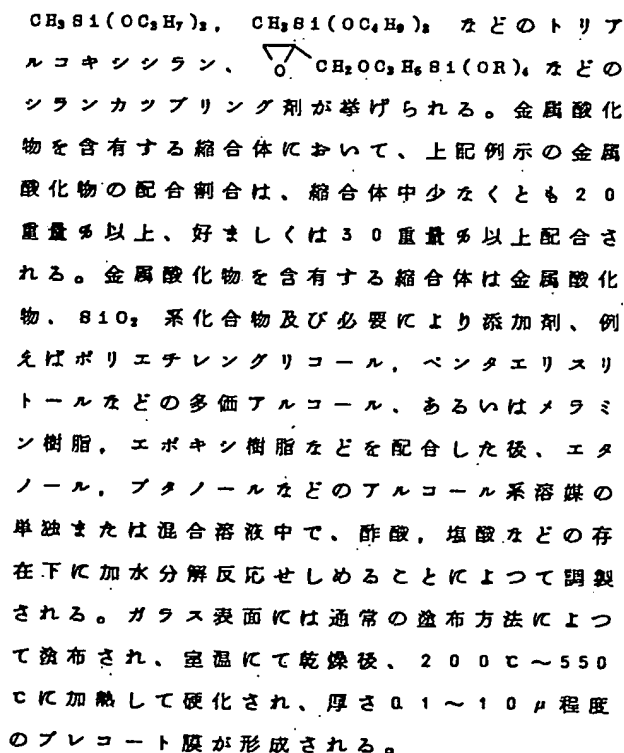 CH₃Si(OC₃H₇)₃, CH₃Si(OC₄H₉)₃ などのトリア
ルコキシシラン、 O CH₂OC₃H₆Si(OR)₄ などの
シランカツプリング剤が挙げられる。金属酸化
物を含有する縮合体において、上記例示の金属
酸化物の配合割合は、縮合体中少なくとも20
重量%以上、好ましくは30重量%以上配合さ
れる。金属酸化物を含有する縮合体は金属酸化
物、SiO₂ 系化合物及び必要により添加剤、例
えばポリエチレングリコール，ペンタエリスリ
トールなどの多価アルコール、あるいはメラミ
ン樹脂，エポキシ樹脂などを配合した後、エタ
ノール，ブタノールなどのアルコール系溶媒の
単独または混合溶液中で、酢酸，塩酸などの存
在下に加水分解反応せしめることによつて調製
される。ガラス表面には通常の塗布方法によつ
て塗布され、室温にて乾燥後、200℃～550
℃に加熱して硬化され、厚さ0.1～10μ程度
のプレコート膜が形成される。